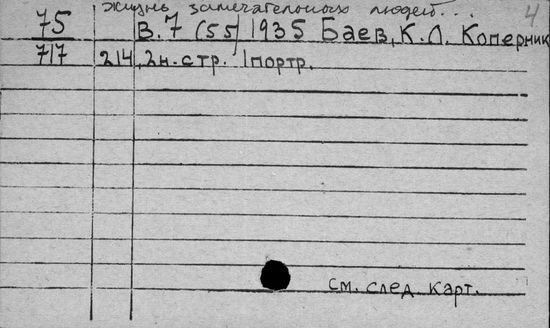 Жизнь замечательных людей... 4
75 В.7 (55) 1935 Баев, К.Л. Коперник
717 214, 2н.стр. 1портр.
См. след. карт.